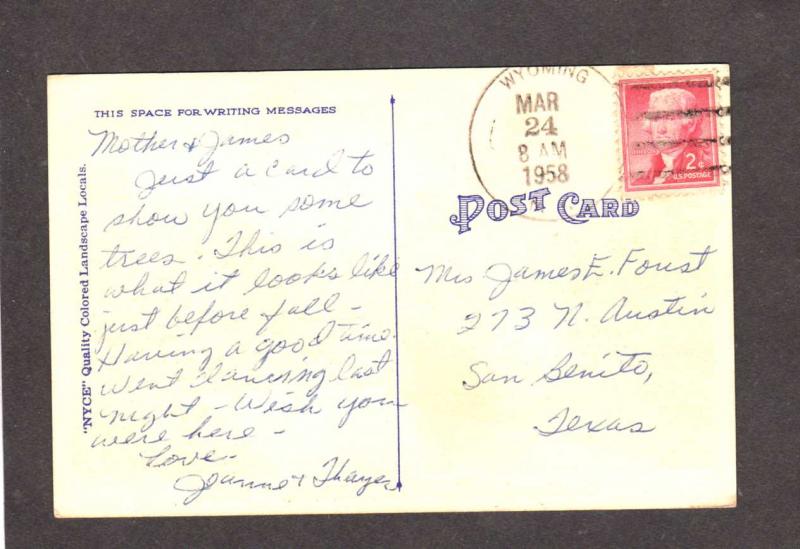 THIS SPACE FOR WRITING MESSAGES
Mother & James
Just a card to
show you some
trees. This is
what it looks like
just before fall -
Having a good time.
Went dancing last
night - Wish you
were here -
Love -
Jeanne & Thayer
"NYCE" Quality Colored Landscape Locals.
WYOMING
MAR
24
8 AM
1958
2¢
U.S. POSTAGE
POST CARD
Mrs James E. Foust
273 N. Austin
San Benito,
Texas